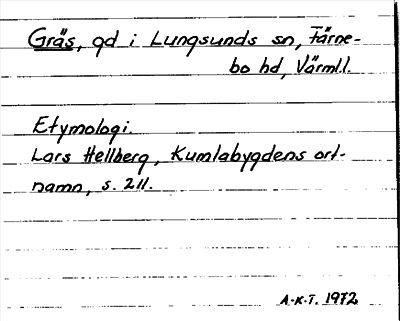 Gräs, gd i Lungsunds sn, Färne-
bo hd, Värml.l.
Etymologi.
Lars Hellberg, Kumlabygdens ort-
namn, s. 211.
A-K.T. 1972